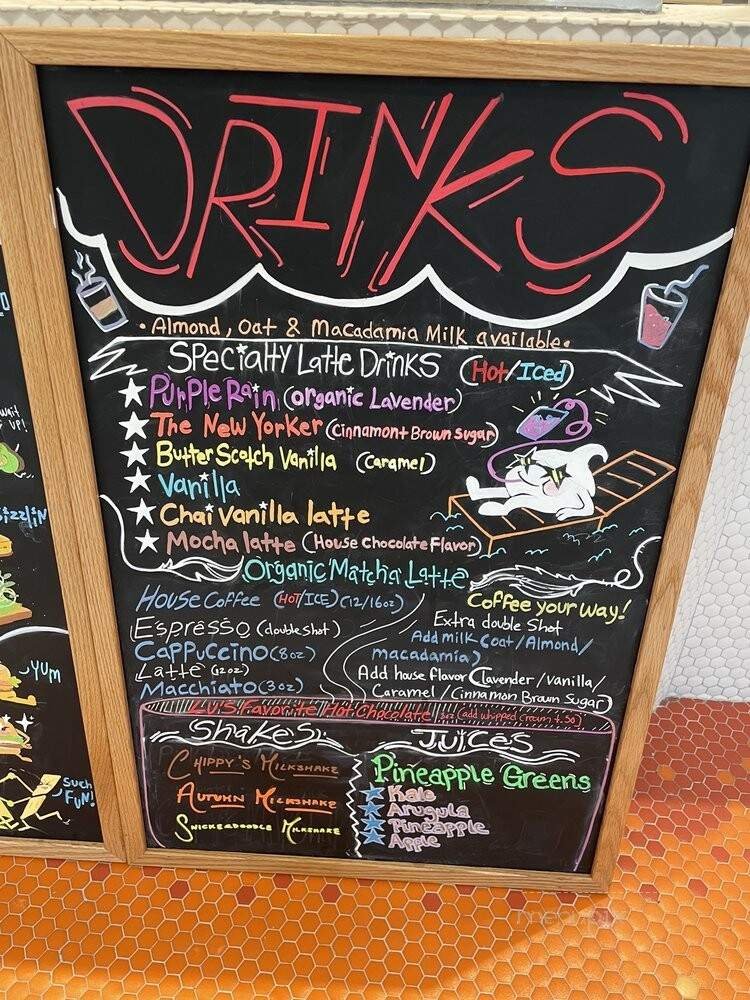 DRINKS
• Almond, Oat & Macadamia Milk available.
Specialty Latte Drinks (Hot/Iced)
Purple Rain (organic Lavender)
The New Yorker (Cinnamon + Brown Sugar)
Butter Scotch Vanilla (Caramel)
Vanilla
Chai Vanilla latte
Mocha latte (House Chocolate Flavor)
Organic Matcha Latte
House Coffee (HOT/ICE) (12/16oz)
Espresso (double shot)
Cappuccino (8oz)
Latte (12oz)
Macchiato (3oz)
Coffee your way!
Extra double Shot
Add milk (oat/Almond/
macadamia)
Add house flavor (Lavender/vanilla/
Caramel/Cinnamon Brown Sugar)
Favorite Hot Chocolate (add whipped cream +.50)
Shakes:
Chippy's Milkshake
Autumn Milkshake
Snickerdoodle Milkshake
Juices
Pineapple Greens
Kale
Arugula
Pineapple
Apple
wait
UP!
izzlin
~YUM
SUCH
FUN!